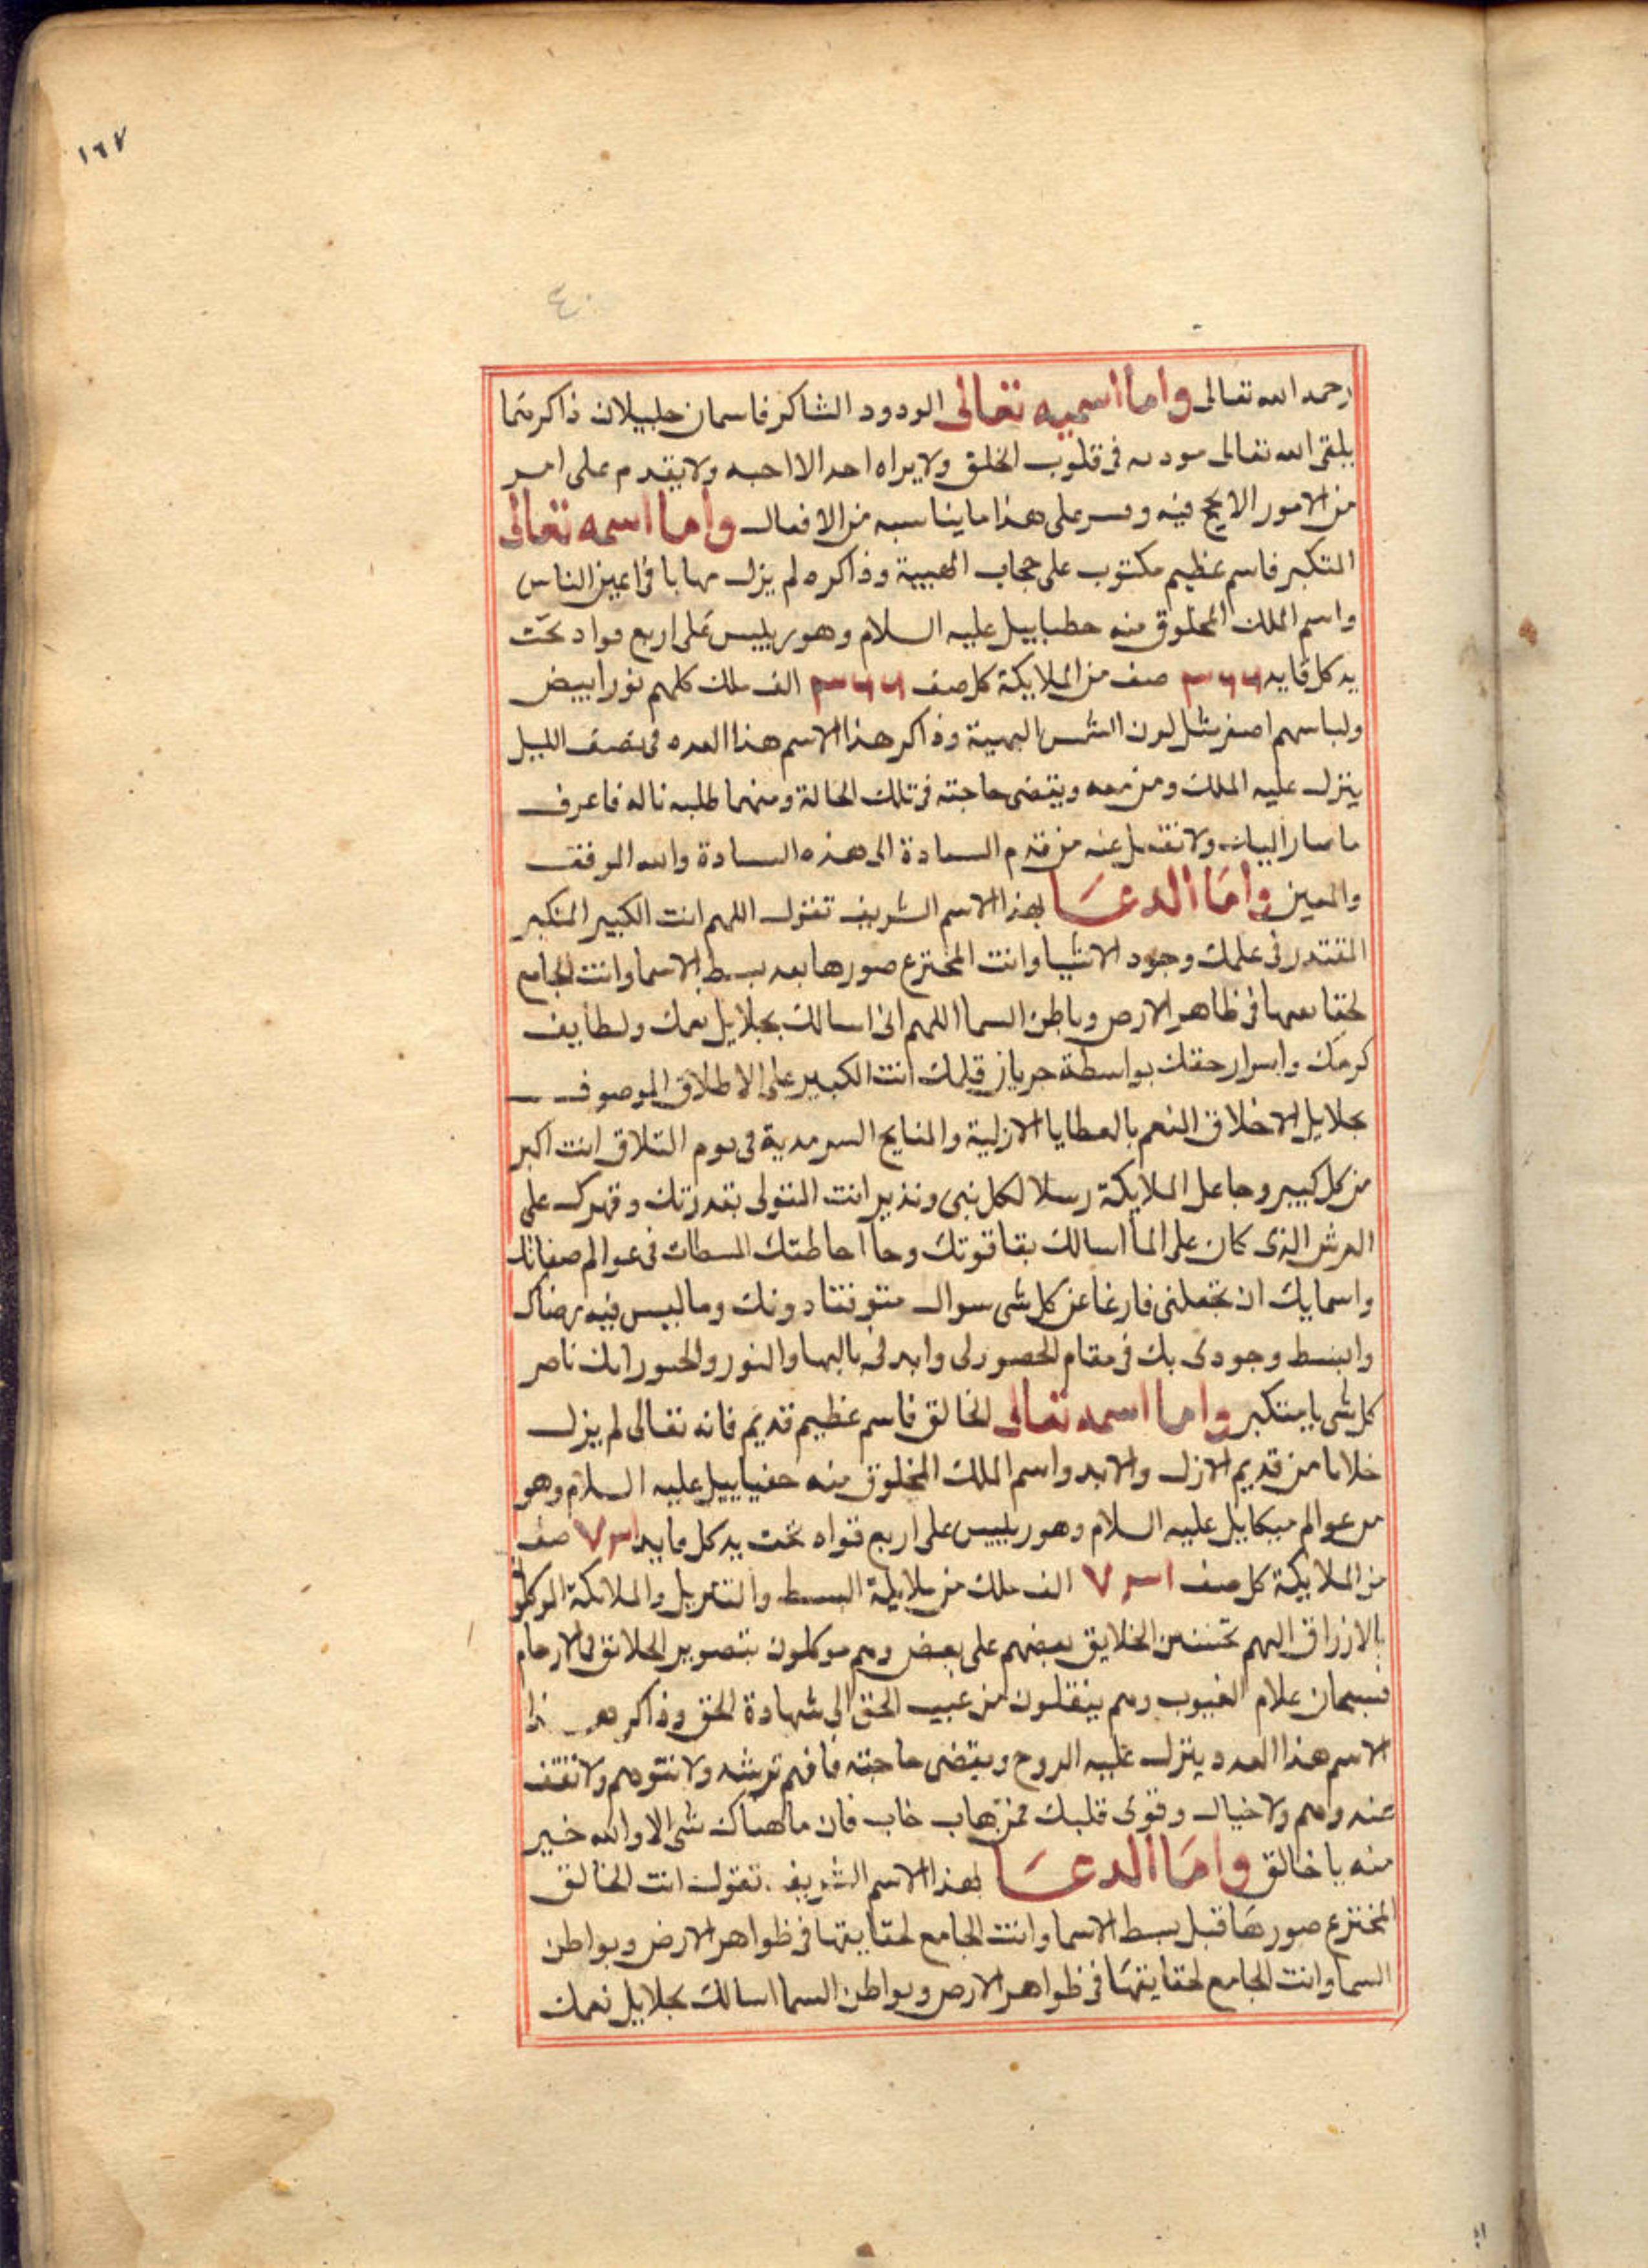 ١٦٧
٤٠
رحمه الله تعالى واما اسميه تعالى الودود الشاكر فاسمان جليلان ذاكرهما
يلقى الله تعالى مودته فى قلوب الخلق ولا يراه احد الا احبه ولا يقدم على امر
من الامور الا نجح فيه وقس على هذا ما يناسبه من الافعال واما اسمه تعالى
المتكبر فاسم عظيم مكتوب على حجاب الهيبة وذاكره لم يزل مهابا فى اعين الناس
واسم الملك المخلوق منه عليه السلام وهو رييس على اربع قواد تحت
يد كل قايد صف من الملايكة كل صف الف ملك كلهم نور ابيض
ولباسهم اصفر مثل لون الشمس البهية وذاكر هذا الاسم هذا العدد فى نصف الليل
ينزل عليه الملك ومن معه ويقضى حاجته فى تلك الحالة ومهما طلبه ناله فاعرف
ما صار اليك ولا تغفل عنه من قدم السادة الى هذه السادة والله الموفق
والمعين واما الدعا بهذا الاسم الشريف تقول اللهم انت الكبير المتكبر
المقتدر فى علمك وجود الاشيا وانت المخترع صورها بعد بسط الاسما وانت الجامع
لحقايقها فى ظاهر الارض وباطن السما اللهم انى اسالك بجلايل نعمك ولطايف
كرمك واسرار حقك بواسطة جريان قلمك انت الكبير على الاطلاق الموصوف
بجلايل الاخلاق المنعم بالعطايا الازلية والمنايح السرمدية فى يوم التلاق انت اكبر
من كل كبير وجاعل الملايكة رسلا لكل نبى ونذير انت المتولى بقدرتك وقهرك على
العرش الذى كان على الما اسالك بقا قوتك وحا احاطتك فى عوالم صفاتك
واسمايك ان تجعلنى فارغا عن كل شى سواك دونك وما ليس فيه رضاك
وابسط وجودى بك فى مقام الحضور لى وايدنى بالبها والنور والحبور انك ناصر
كل شى يا متكبر واما اسمه تعالى الخالق فاسم عظيم قديم فانه تعالى لم يزل
خلاقا من قديم الازل والابد واسم الملك المخلوق منه عليه السلام وهو
من عوالم ميكاييل عليه السلام وهو رييس على اربع قواد تحت يد كل قايد ٧٣١ صف
من الملايكة كل صف ٧٣١ الف ملك من ملايكة البسط والتنزيل والملايكة الموكلون
بالارزاق اليهم الخلايق بعضهم على بعض وهم موكلون بتصوير الخلايق فى الارحام
فسبحان علام الغيوب وهم ينقلون من غيب الحق الى شهادة الحق وذاكر هذا
الاسم هذا العدد ينزل عليه الروح ويقضى حاجته فافهم ترشد ولا تتوهم ولا تقف
عند وهم ولا خيال وقوى قلبك فمن هاب خاب فان ما هناك شى الا والله خير
منه يا خالق واما الدعا بهذا الاسم الشريف تقول انت الخالق
المخترع صورها قبل بسط الاسما وانت الجامع لحقايقها فى ظواهر الارض وبواطن
السما وانت الجامع لحقايقها فى ظواهر الارض وبواطن السما اسالك بجلايل نعمك